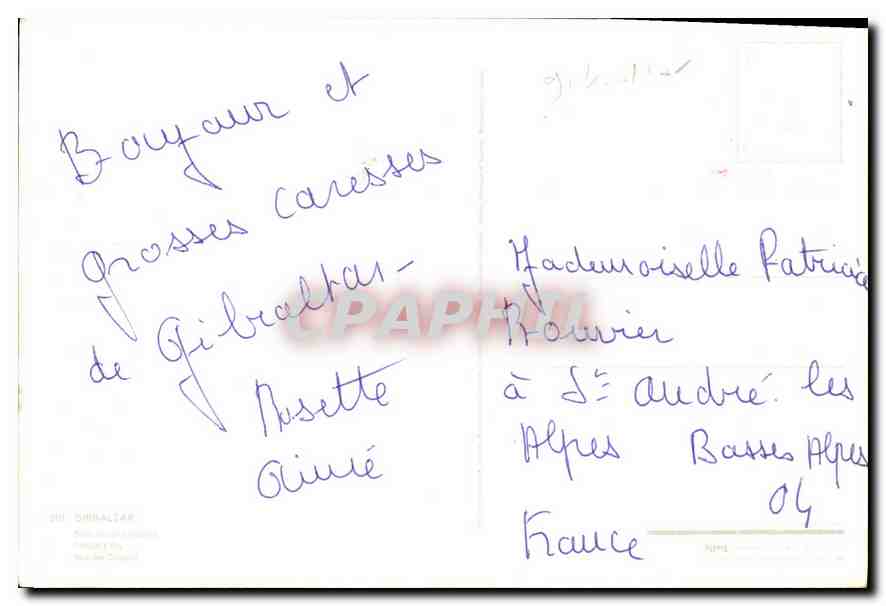 Bonjour et
grosses caresses
de Gibraltar -
Rosette
Aimé
gibraltar
Mademoiselle Patricia
Bouvier
à St André les
Alpes Basses Alpes
04
France
CPAPHIL
GIBRALTAR